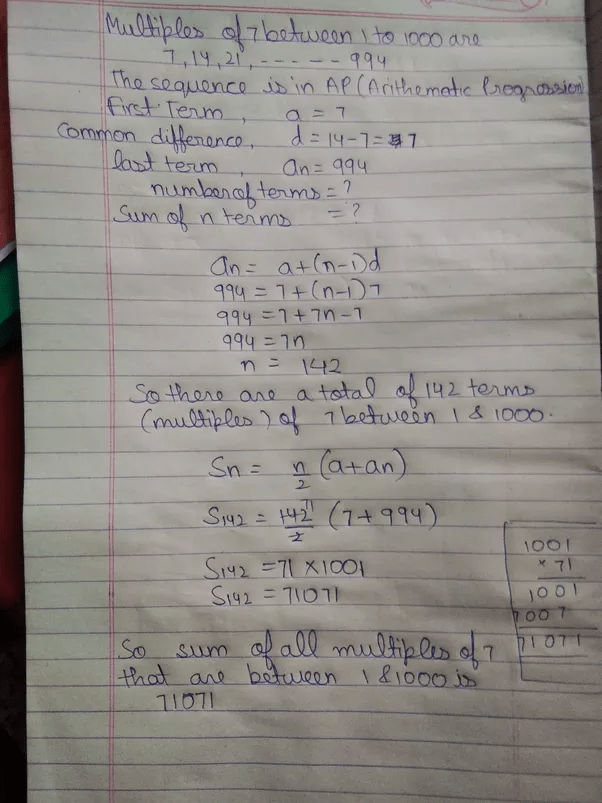 Multiples of 7 between 1 to 1000 are
7, 14, 21, - - - - - 994
The sequence is in AP (Arithematic Progression)
First Term, a = 7
Common difference, d = 14-7 = 7
last term, an = 994
number of terms = ?
Sum of n terms = ?
an = a+(n-1)d
994 = 7+(n-1)7
994 = 7+7n-7
994 = 7n
n = 142
So there are a total of 142 terms
(multiples) of 7 between 1 & 1000.
Sn = n/2 (a+an)
S142 = 142/2 71 (7+994)
S142 = 71×1001
S142 = 71071
1001
× 71
1001
7007
71071
So sum of all multiples of 7
that are between 1 & 1000 is
71071